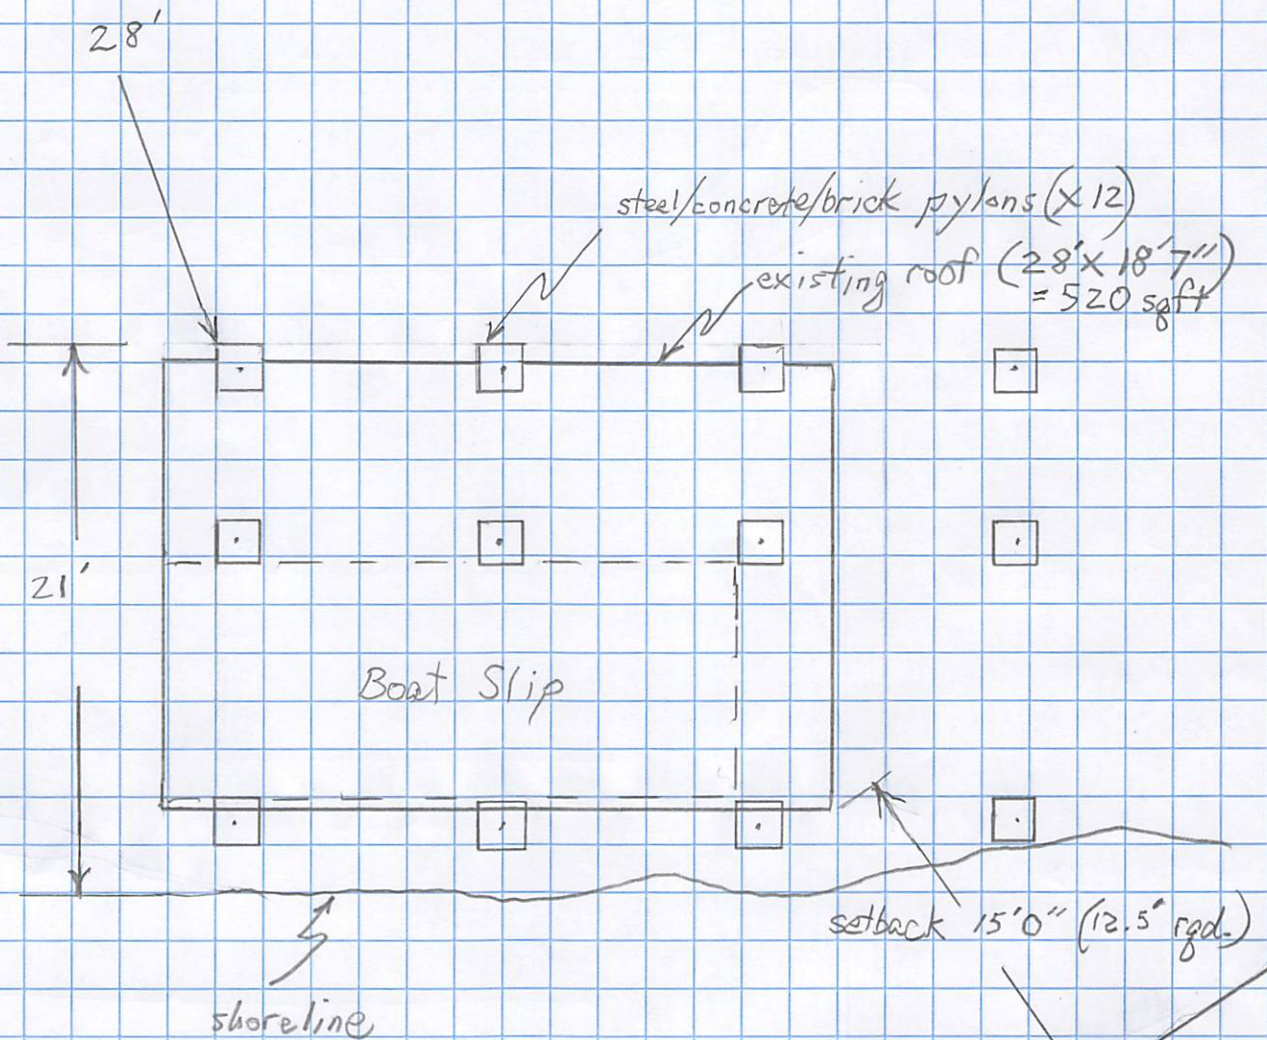 28'
steel/concrete/brick pylons (X 12)
existing roof (28' X 18' 7"
= 520 sqft)
21'
Boat Slip
setback 15'0" (12.5' rqd.)
shoreline